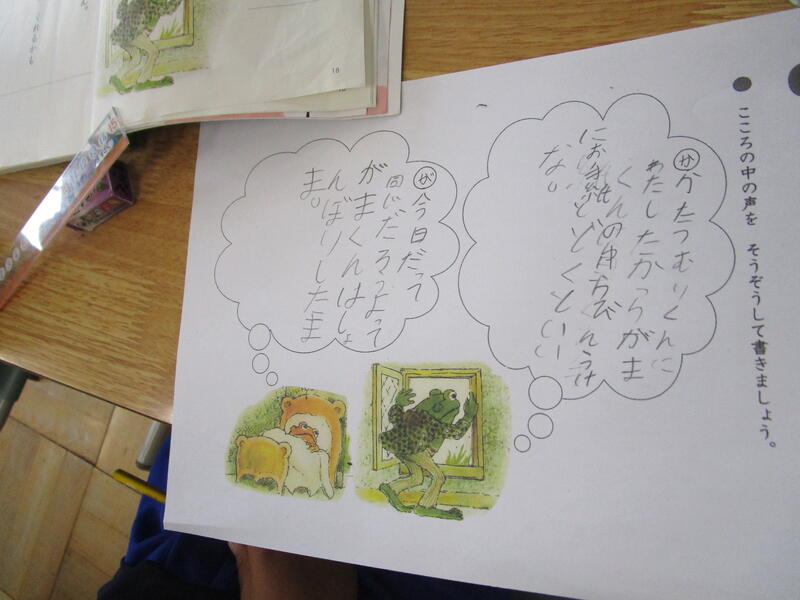 こころの中の声を そうぞうして書きましょう。
か かたつむりくんに
わたしたからがま
くんの
にお手紙とどくといい
な。
が 今日だって
同じだろうよって
がまくんはしょ
んぼりしたま
ま。
18